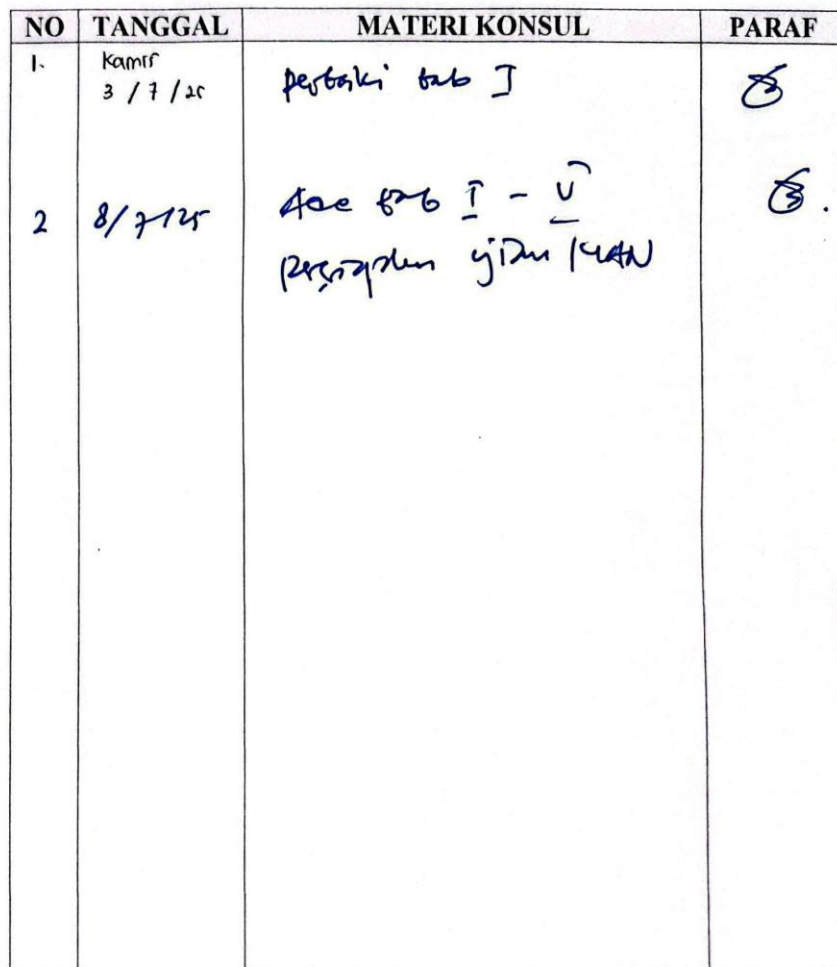 NO TANGGAL MATERI KONSUL PARAF
1. Kamis
3 / 7 / 25 perbaiki bab I
2 8/7/25 Acc bab I - V
persiapan ujian KIAN